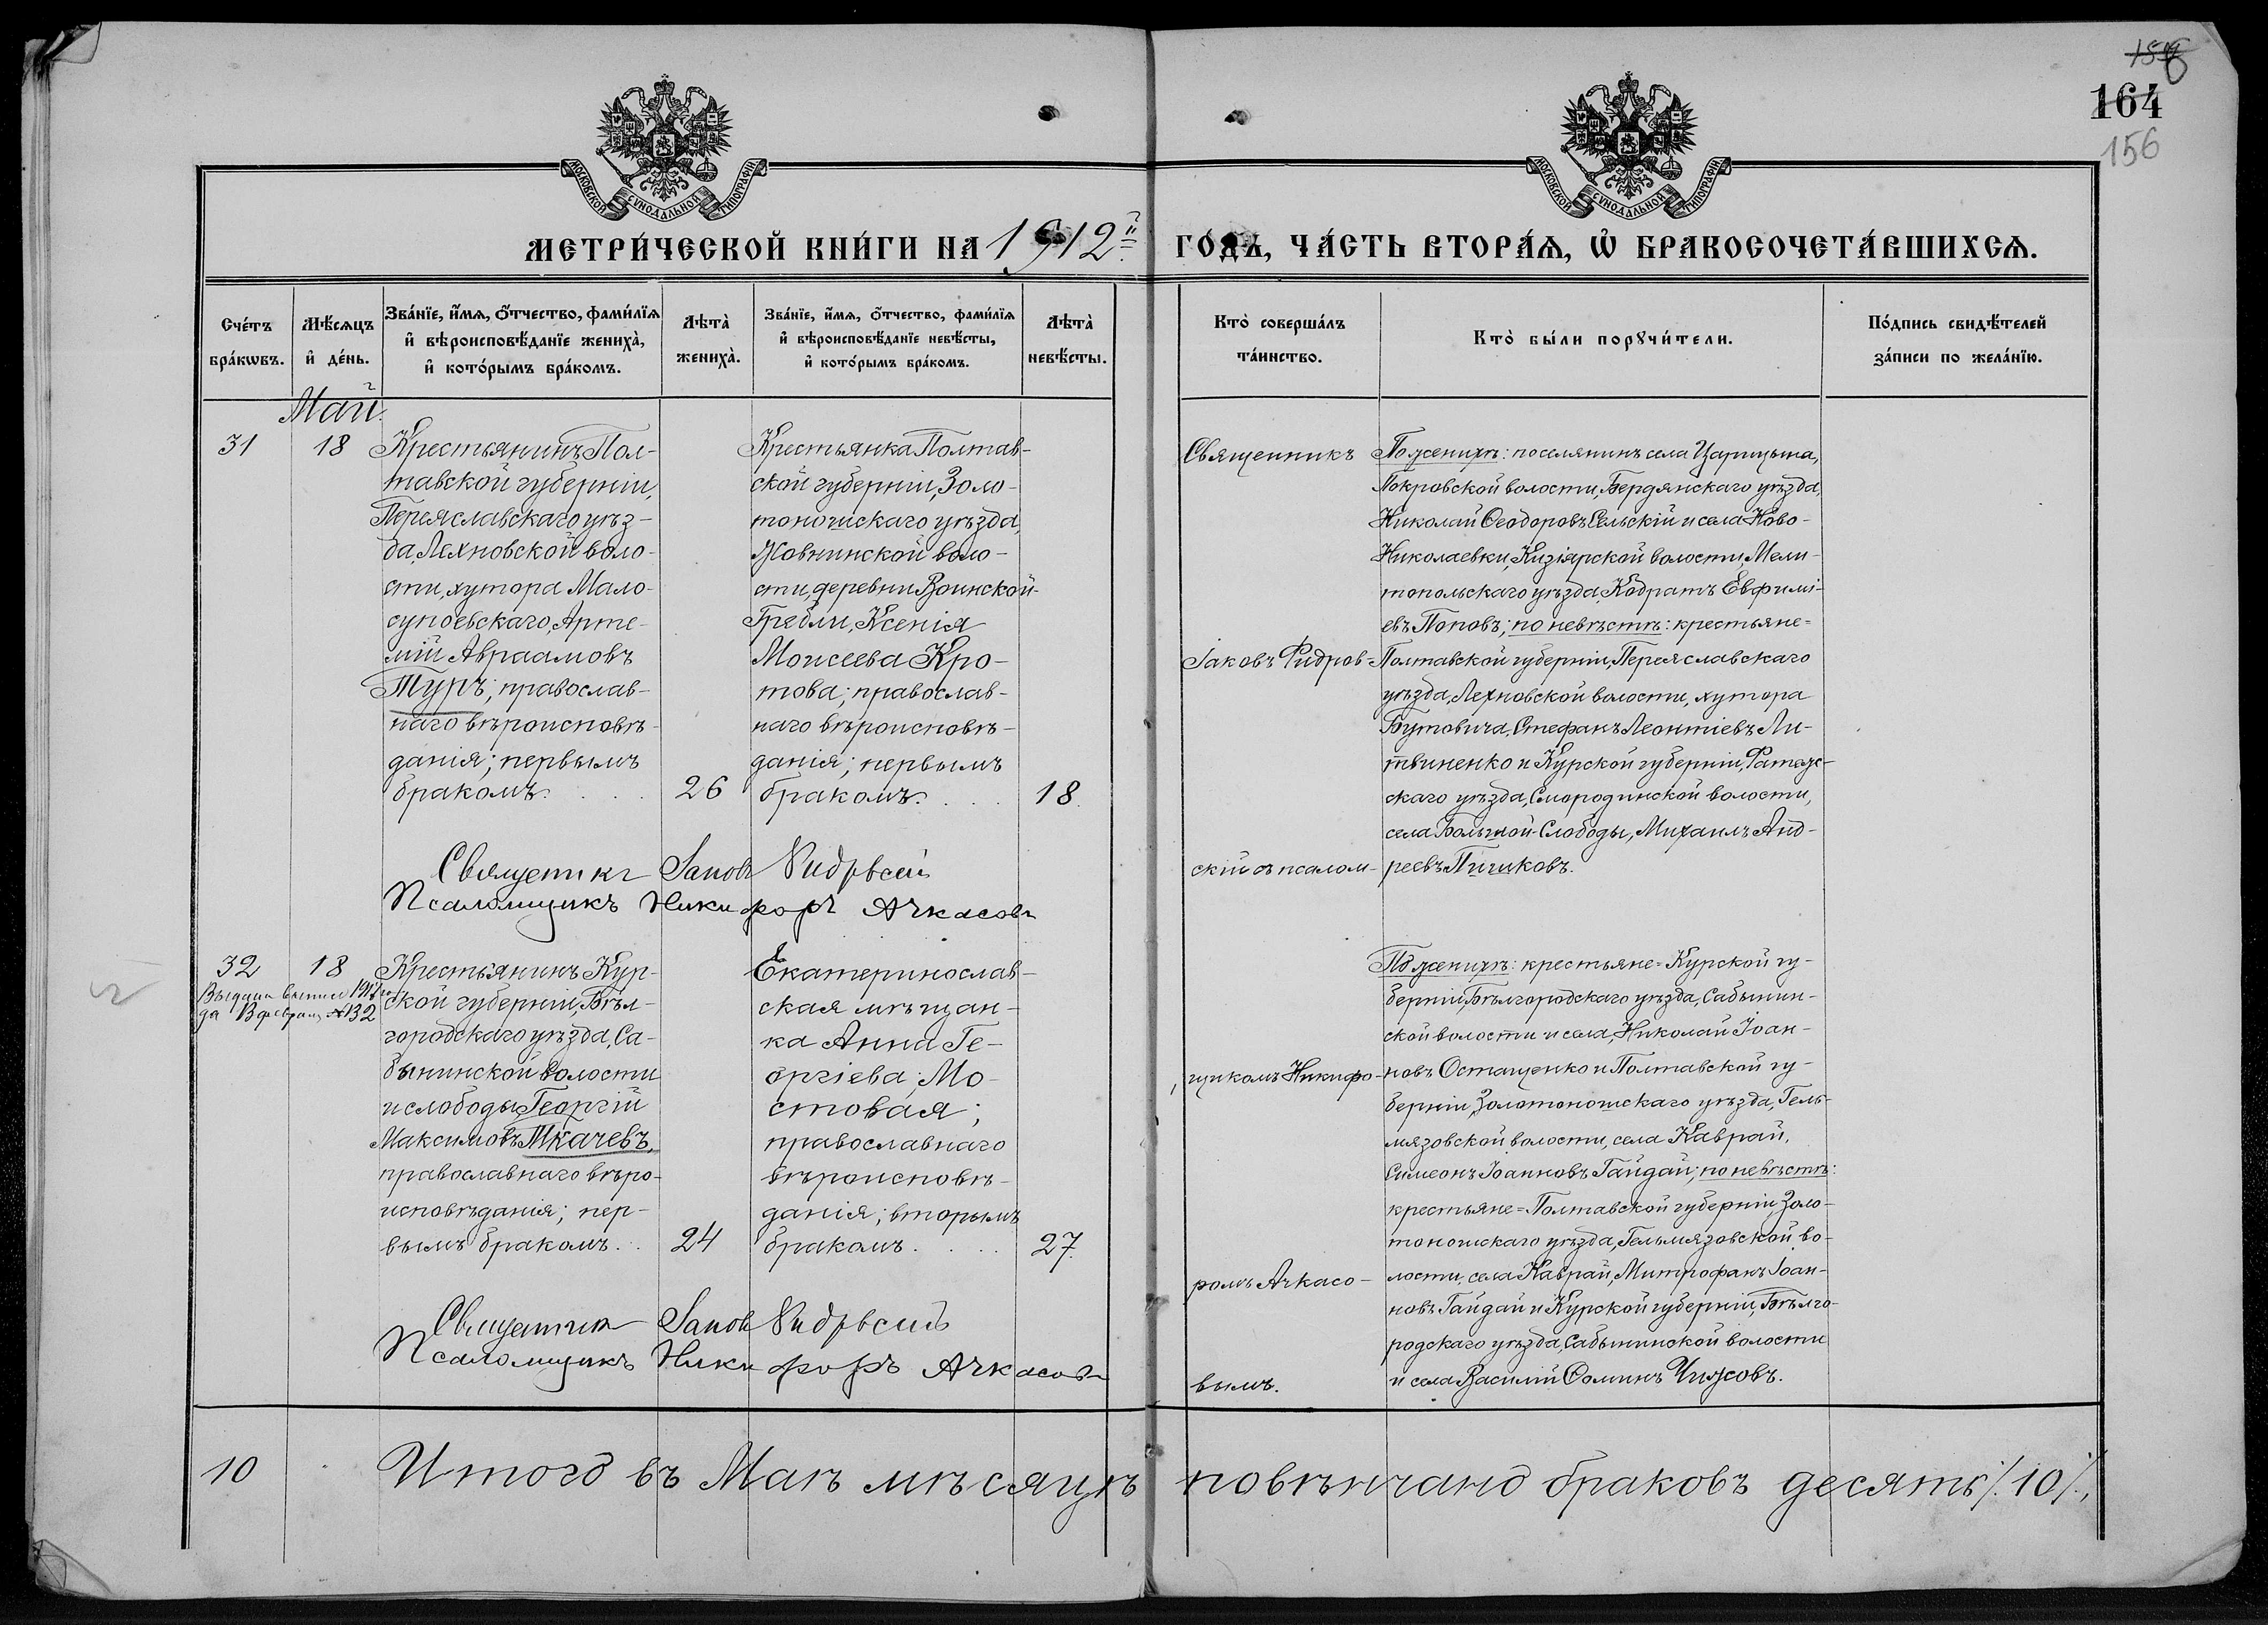 158
164
156
МОСКОВСКОЙ СѴНОДАЛЬНОЙ ТИПОГРАФІИ
МОСКОВСКОЙ СѴНОДАЛЬНОЙ ТИПОГРАФІИ
МЕТРИ́ЧЕСКОЙ КНИ́ГИ НА 1912й ГО́ДЪ, ЧА́СТЬ ВТОРА́Ѧ, Ѡ҆ БРАКОСОЧЕТА́ВШИХСѦ.
Сче́тъ бра́кѡвъ.
Мѣ́сяцъ и҆ де́нь.
Зва́нїе, и҆́мѧ, ѻ҆́тчество, фами́лїѧ и҆ вѣроисповѣ́данїе жениха̀, и҆ кото́рымъ бра́комъ.
Лѣта̀ жениха̀.
Зва́нїе, и҆́мѧ, ѻ҆́тчество, фами́лїѧ и҆ вѣроисповѣ́данїе невѣ́сты, и҆ кото́рымъ бра́комъ.
Лѣта̀ невѣ́сты.
Кто̀ соверша́лъ та́инство.
Кто̀ бы́ли порꙋчи́тели.
По́дпись свидѣ́телей за́писи по жела́нїю.
Май.
31
18
Крестьянинъ Пол-
тавской губерніи,
Переяславскаго уѣз-
да, Лехновской воло-
сти, хутора Мало-
супоевскаго, Арте-
мій Авраамовъ
Туръ; православ-
наго вѣроисповѣ-
данія; первымъ
бракомъ.
26
Крестьянка Полтав-
ской губерніи, Золо-
тоношскаго уѣзда,
Жовнинской воло-
сти, деревни Воинской-
Гребли, Ксенія
Моисеева Кро-
това; православ-
наго вѣроисповѣ-
данія; первымъ
бракомъ.
18.
Священникъ
Іаковъ Фидров-
скій съ псалом-
щикомъ Никифо-
ромъ Ачкасо-
вымъ.
По женихѣ: поселянинъ села Царицына,
Покровской волости, Бердянскаго уѣзда,
Николай Ѳеодоровъ Сельскій и села Ново-
Николаевки, Кизіярской волости, Мели-
топольскаго уѣзда, Кодратъ Евфимі-
евъ Поповъ; по невѣстѣ: крестьяне=
Полтавской губерніи, Переяславскаго
уѣзда, Лехновской волости, хутора
Бутовича, Стефанъ Леонтіевъ Ли-
твиненко и Курской губерніи, Фатеж-
скаго уѣзда, Смородинской волости,
села Большой-Слободы, Михаилъ Анд-
реевъ Пишковъ.
Священникъ Іаковъ Фидровскій
Псаломщикъ Никифоръ Ачкасовъ
32
18
да 13 февраля № 132
Крестьянинъ Кур-
ской губерніи, Бѣл-
городскаго уѣзда, Са-
бынинской волости
и слободы Георгій
Максимовъ Ткачевъ,
православнаго вѣро-
исповѣданія; пер-
вымъ бракомъ.
24
Екатеринослав-
ская мѣщан-
ка Анна Ге-
оргіева Мо-
стовая;
православнаго
вѣроисповѣ-
данія; вторымъ
бракомъ.
27.
По женихѣ: крестьяне= Курской гу-
берніи, Бѣлгородскаго уѣзда, Сабынин-
ской волости и села, Николай Іоан-
новъ Остащенко и Полтавской гу-
берніи, Золотоношскаго уѣзда, Гель-
мязовской волости, села Каврай,
Симеонъ Іоанновъ Гайдай; по невѣстѣ:
крестьяне= Полтавской губерніи, Золо-
тоношскаго уѣзда, Гельмязовской во-
лости, села Каврай, Митрофанъ Іоан-
новъ Гайдай и Курской губерніи, Бѣлго-
родскаго уѣзда, Сабынинской волости
и села Василій Ѳоминъ Чижовъ.
Священникъ Іаковъ Фидровскій
Псаломщикъ Никифоръ Ачкасовъ
10
Итого въ Маѣ мѣсяцѣ повѣнчано браковъ десять /.10/.